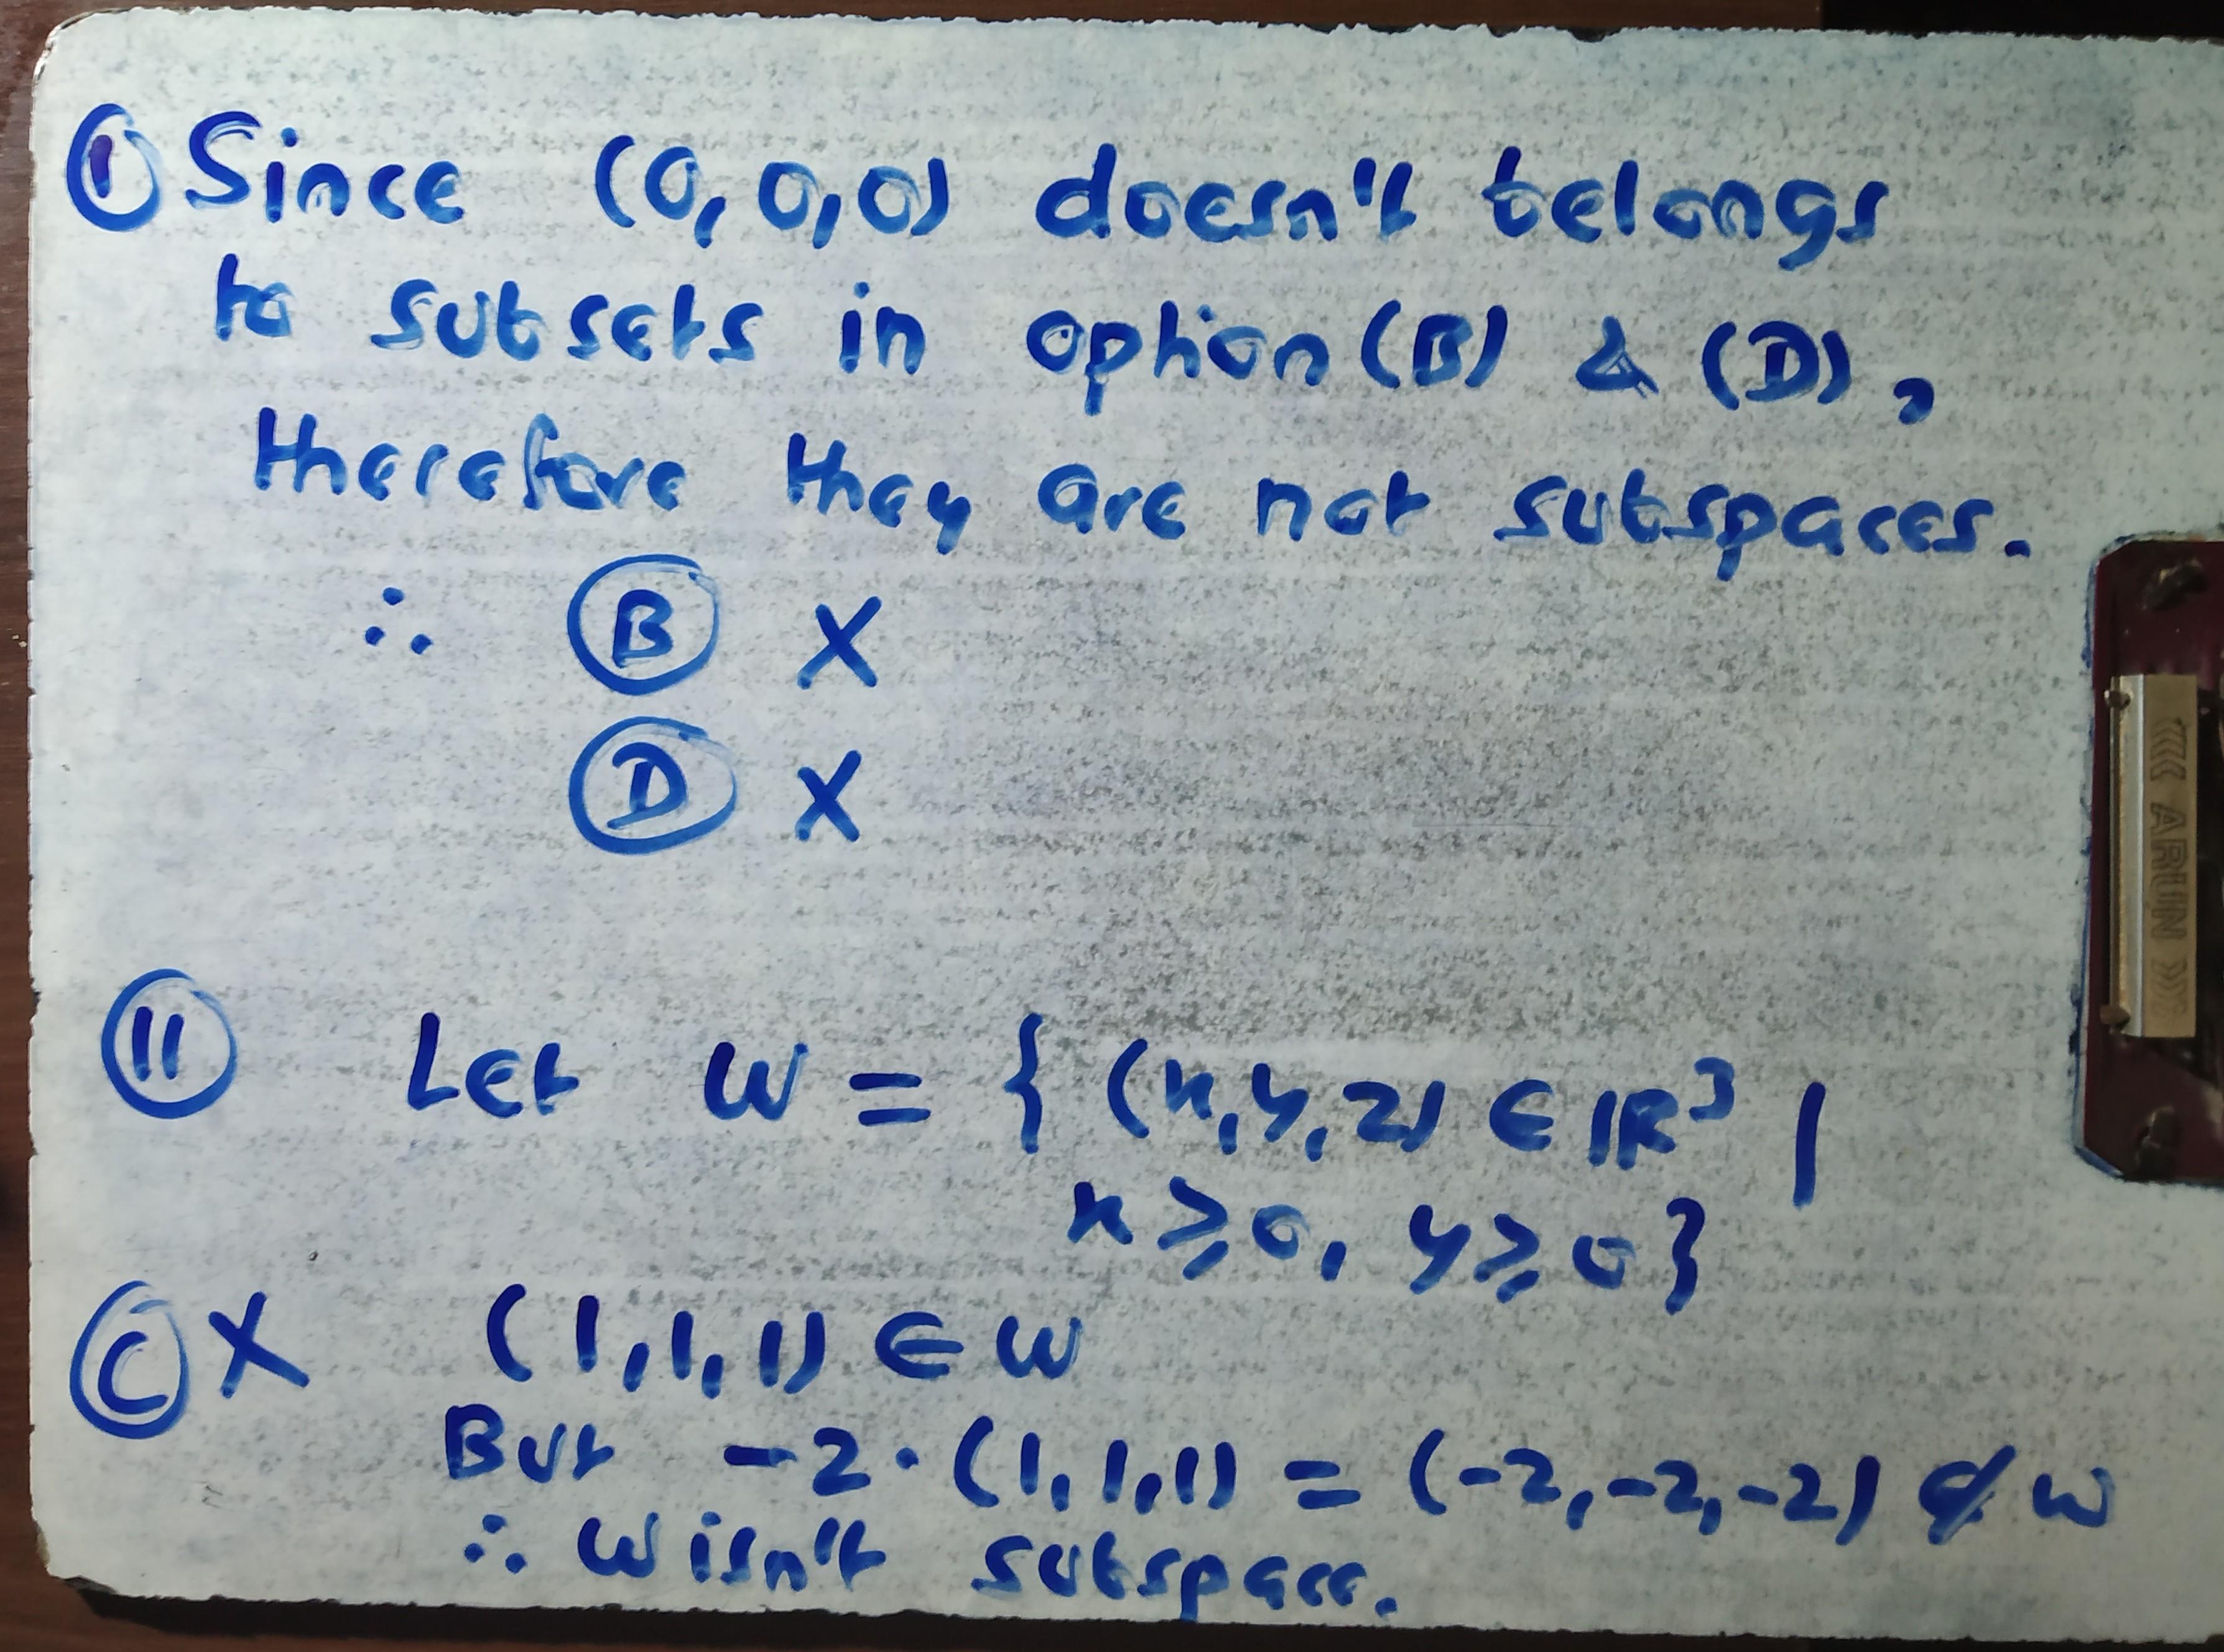 ① Since (0,0,0) doesn't belongs
to subsets in option (B) & (D),
therefore they are not subspaces.
∴ Ⓑ X
Ⓓ X
⑪ Let W = { (x,y,z) ∈ ℝ³ |
x ≥ 0, y ≥ 0 }
Ⓒ X (1,1,1) ∈ W
But -2·(1,1,1) = (-2,-2,-2) ∉ W
∴ W isn't subspace.
ARUN